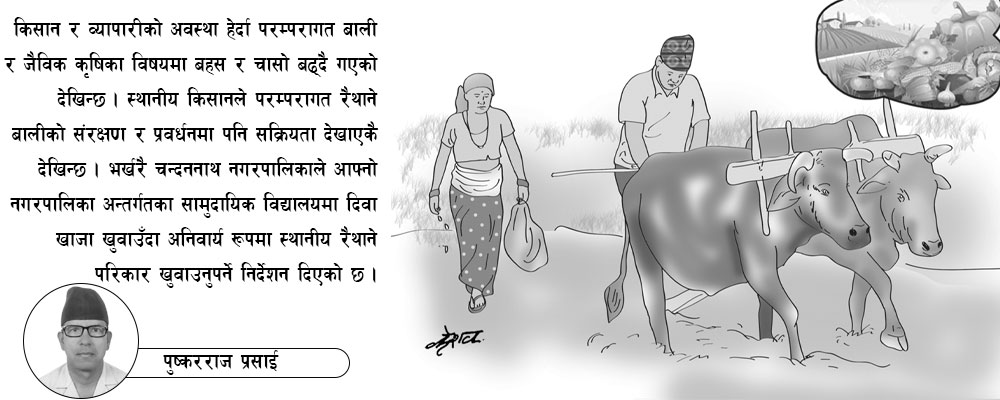 किसान र व्यापारीको अवस्था हेर्दा परम्परागत बाली
र जैविक कृषिका विषयमा बहस र चासो बढ्दै गएको
देखिन्छ । स्थानीय किसानले परम्परागत रैथाने
बालीको संरक्षण र प्रवर्धनमा पनि सक्रियता देखाएकै
देखिन्छ । भर्खरै चन्दननाथ नगरपालिकाले आफ्नो
नगरपालिका अन्तर्गतका सामुदायिक विद्यालयमा दिवा
खाजा खुवाउँदा अनिवार्य रूपमा स्थानीय रैथाने
परिकार खुवाउनुपर्ने निर्देशन दिएको छ ।
पुष्करराज प्रसाई